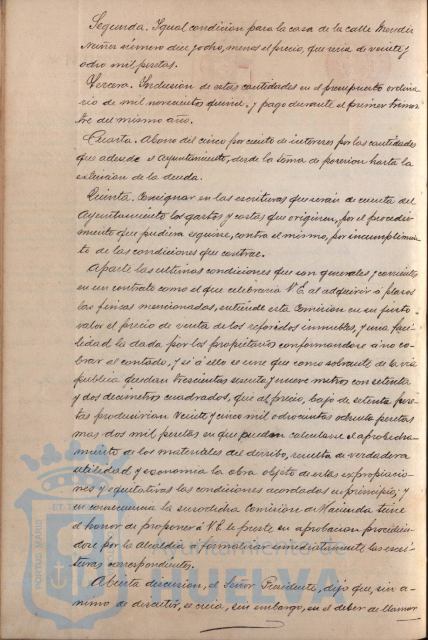 Segunda. Igual condición para la casa de la calle Mendez
Nuñez número diez y ocho, menos el precio, que seria de veinte y
ocho mil pesetas.
Tercera. Inclusion de estas cantidades en el presupuesto ordina-
rio de mil novecientos quince y pago durante el primer trimes-
tre del mismo año.
Cuarta. Abono del cinco por ciento de intereses por las cantidades
que adeude el Ayuntamiento, desde la toma de posesion hasta la
extincion de la deuda.
Quinta. Consignar en las escrituras que serán de cuenta del
Ayuntamiento los gastos y costas que originen, por el procedi-
miento que pudiera seguirse, contra el mismo, por incumplimien-
to de las condiciones que contrae.
Aparte las ultimas condiciones que son generales y corrientes
en un contrato como el que celebraria V.E. al adquirir á plazos
las fincas mencionadas, entiende esta Comision en su justo
valor el precio de venta de los referidos inmuebles, y una faci-
lidad la dada por los propietarios conformandose á no co-
brar al contado, y si á ello se une que como sobrante de la via
publica quedan trescientos sesenta y nueve metros con setenta
y dos decimetros cuadrados, que al precio, bajo de setenta pese-
tas producirian veinte y cinco mil ochocientas ochenta pesetas
mas dos mil pesetas en que puedan calcularse el aprovecha-
miento de los materiales del derribo, resulta de verdadera
utilidad y economia la obra objeto de estas expropiacio-
nes y equitativas las condiciones acordadas en principio; y
en consecuencia la susodicha Comision de Hacienda tiene
el honor de proponer á V.E. le preste su aprobacion procedien-
dose por la Alcaldia á formalizar inmediatamente las escri-
turas correspondientes.
Abierta discusion, el Señor Presidente, dijo que, sin a-
nimo de discutir, se creia, sin embargo, en el deber de llamar
PORTUS MARIS
Ayuntamiento de
HUELVA